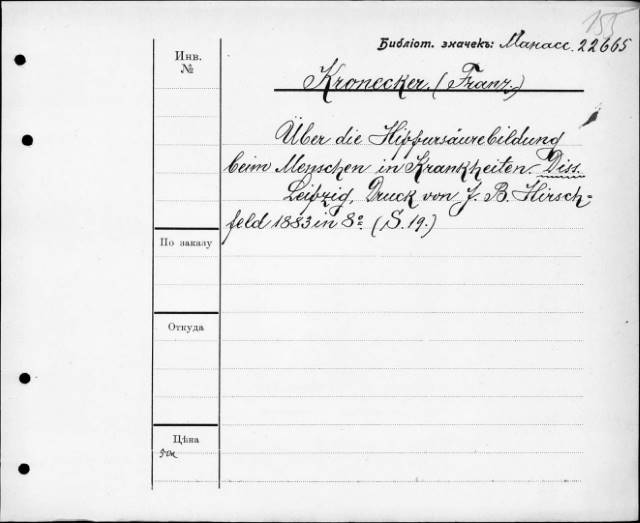 155
Библіот. значекъ: Манасс. 22665
Инв.
№
Kronecker. (Franz.)
Über die Hippursäurebildung
beim Menschen in Krankheiten. Diss.
Leipzig, Druck von J. B. Hirsch-
feld 1883 in 8º. (S. 19.)
По заказу
Откуда
Цѣна